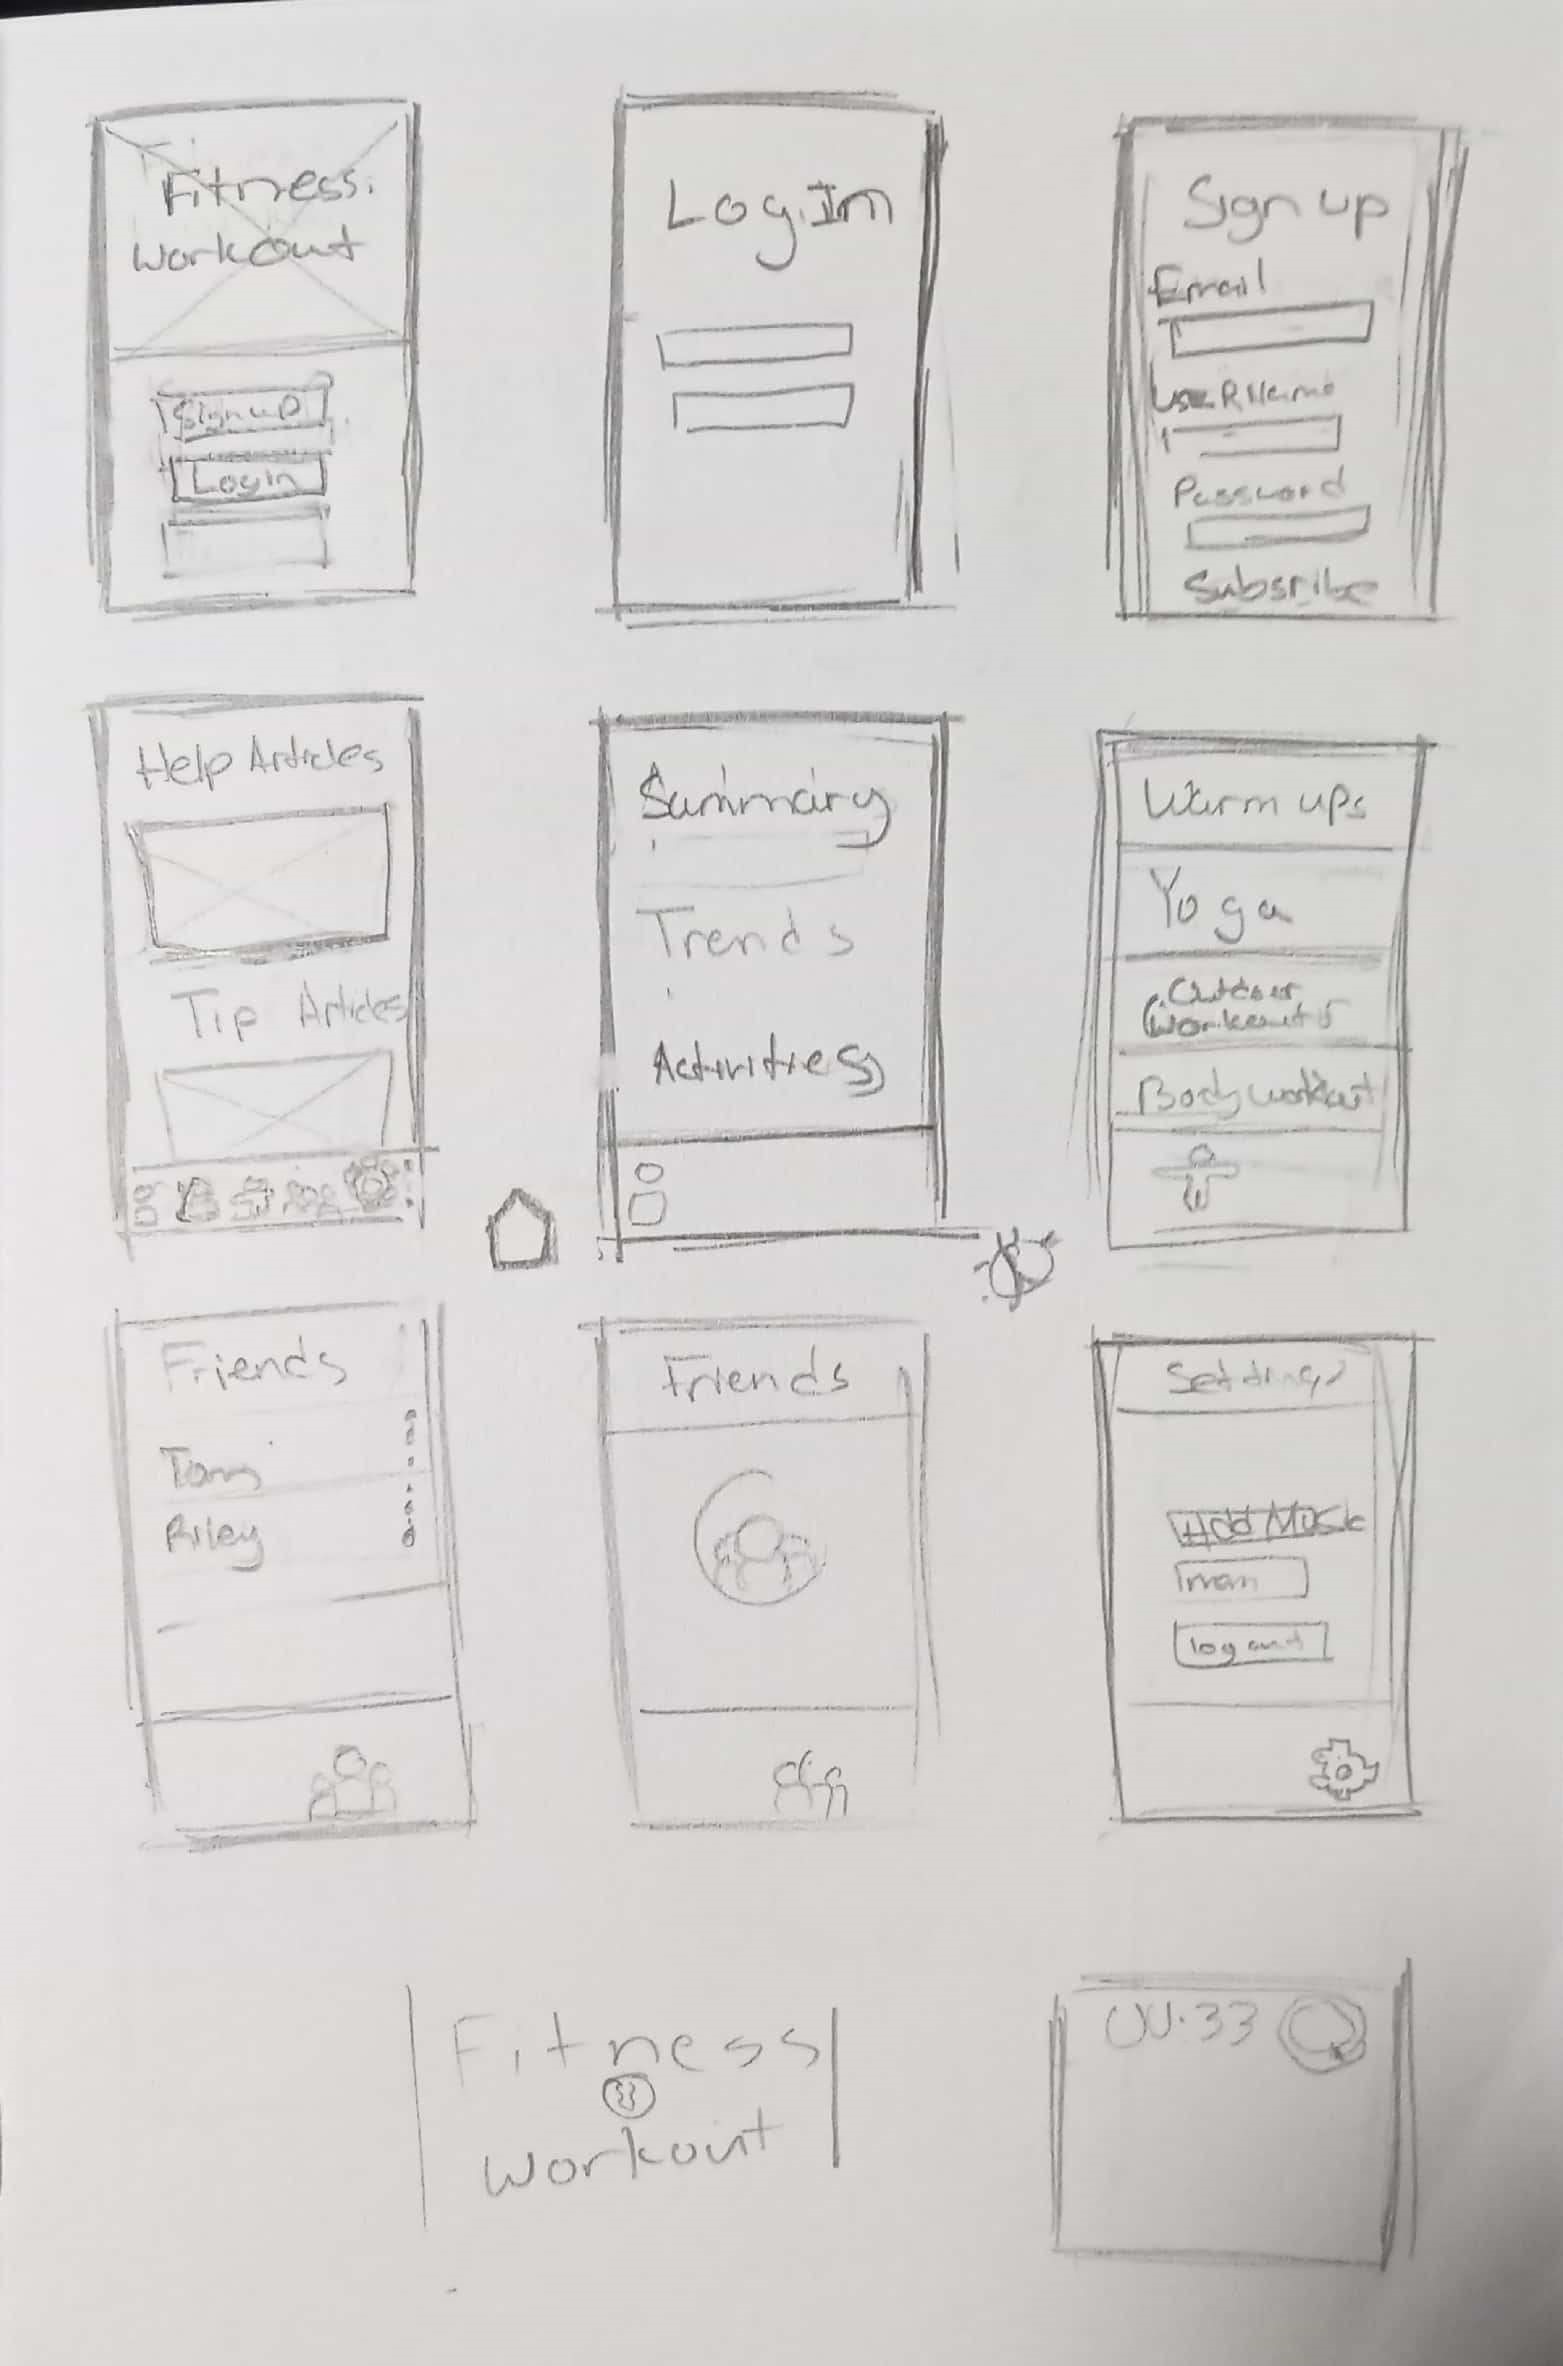 Fitness.
Workout
Sign up
Login
Log.In
Sign up
Email
UseRName
Password
Subsribe
Help Articles
Tip Articles
Summary
Trends
Activities
Warm ups
Yoga
Outdoor
Workouts
Body workout
Friends
Tom
Riley
Friends
Settings
Add Music
log out
Fitness
Workout
00.33